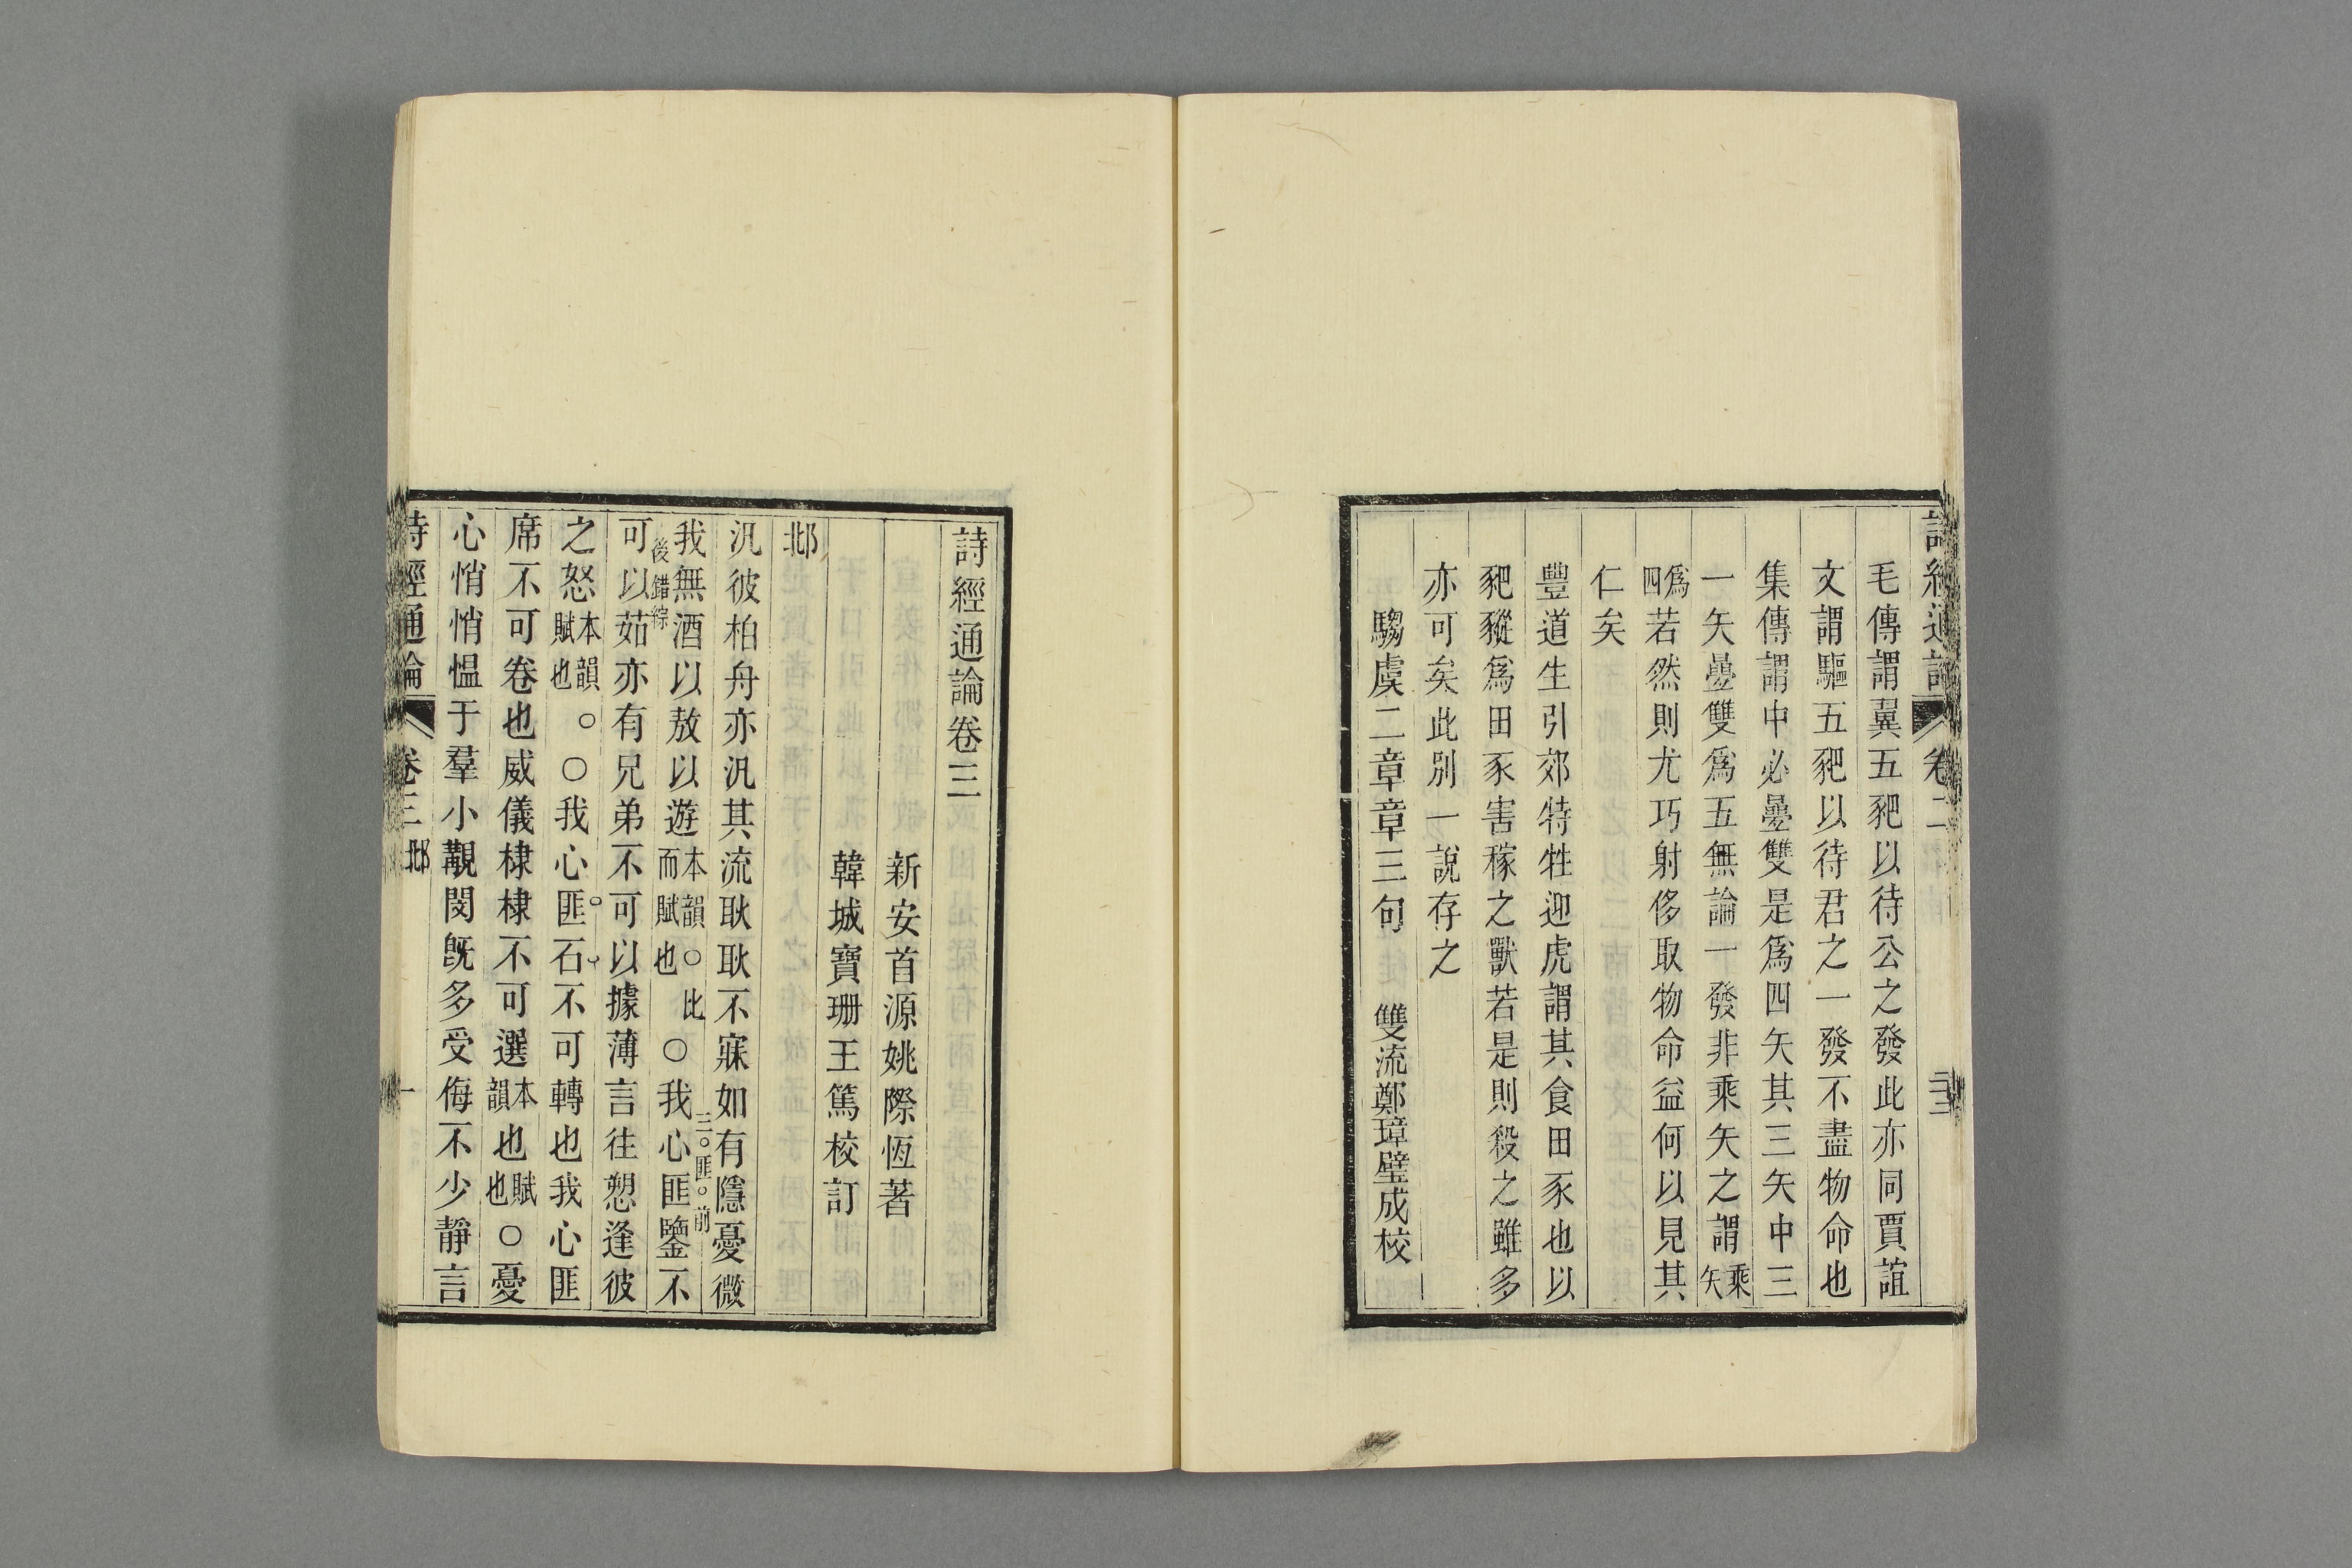 毛傳謂翼五豝以待公之發此亦同賈誼
文謂驅五豝以待君之一發不盡物命也
集傳謂中必疊雙是爲四矢其三矢中三
一矢疊雙爲五無論一發非乘矢之謂乘矢
爲四若然則尤巧射侈取物命益何以見其
仁矣
豐道生引郊特牲迎虎謂其食田豕也以
豝豵爲田豕害稼之獸若是則殺之雖多
亦可矣此別一說存之
騶虞二章章三句 雙流鄭璋璧成校
詩經通論卷三
新安首源姚際恆著
韓城寶珊王篤校訂
邶
汎彼柏舟亦汎其流耿耿不寐如有隱憂微
我無酒以敖以遊本韻○比而賦也○我心匪鑒不
三匪前
後錯綜
可以茹亦有兄弟不可以據薄言往愬逢彼
之怒本韻○賦也○我心匪石不可轉也我心匪
席不可卷也威儀棣棣不可選本韻也賦也○憂
心悄悄慍于羣小覯閔旣多受侮不少靜言
詩經通論 卷三 邶 一